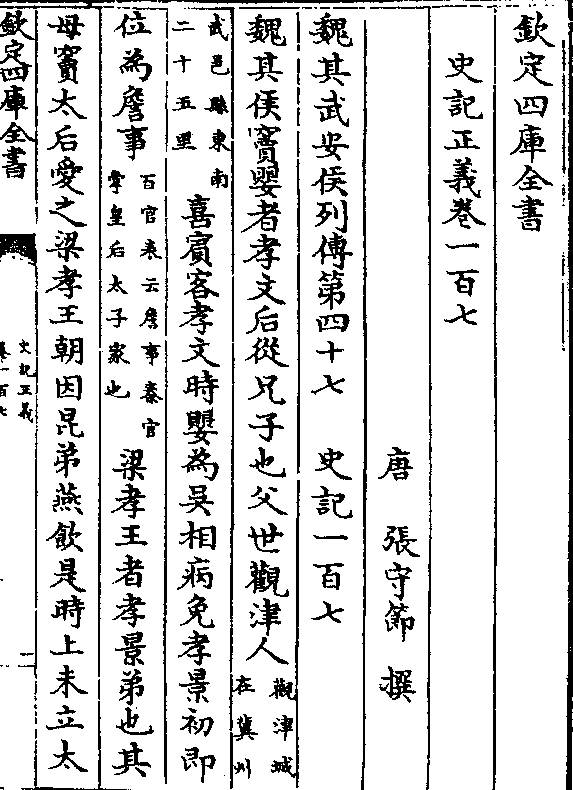 欽定四庫全書
史記正義卷一百七
唐 張守節 撰
魏其武安侯列傳第四十七 史記一百七
魏其侯竇嬰者孝文后從兄子也父世觀津人觀津城在冀州
武邑縣東南二十五里喜賓客孝文時嬰為吳相病免孝景初即
位為詹事百官表云詹事秦官掌皇后太子家也梁孝王者孝景弟也其
母竇太后愛之梁孝王朝因昆弟燕飲是時上未立太
欽定四庫全書
史記正義
卷一百七
二